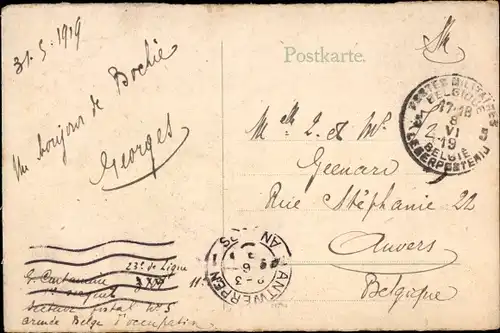 31.5.1919
Un bonjour de Bochie
Georges
Postkarte.
Geenaers
Rue Stéphanie 22
Anvers
Belgique
POSTES MILITAIRES
BELGIQUE
17-18
8
VI
19
BELGIË
LEGERPOSTERIJ
ANTWERPEN
ANVERS
23e de Ligne
secteur postal No 5
armée Belge d'occupation